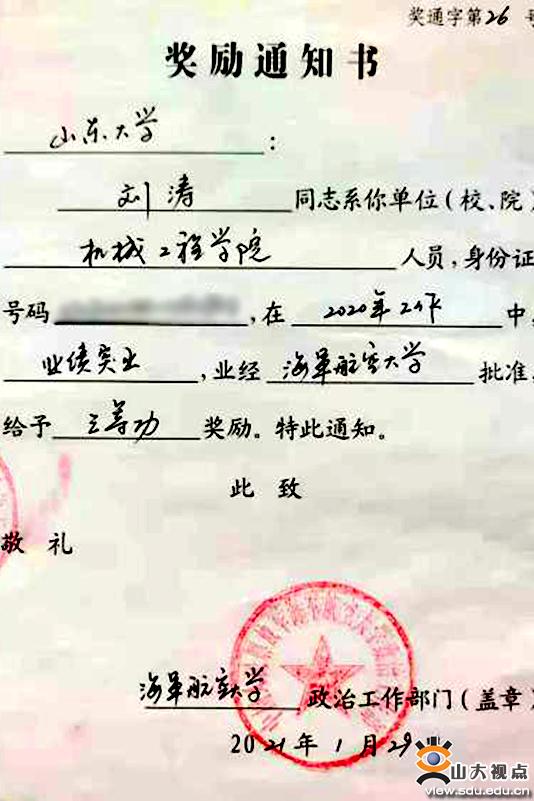 奖通字第26号
奖励通知书
山东大学：
刘涛同志系你单位（校、院）
机械工程学院人员，身份证
号码，在2020年工作中，
业绩突出，业经海军航空大学批准，
给予三等功奖励。特此通知。
此致
敬礼
海军航空大学政治工作部门（盖章）
2021年1月29
山大视点
view.sdu.edu.cn